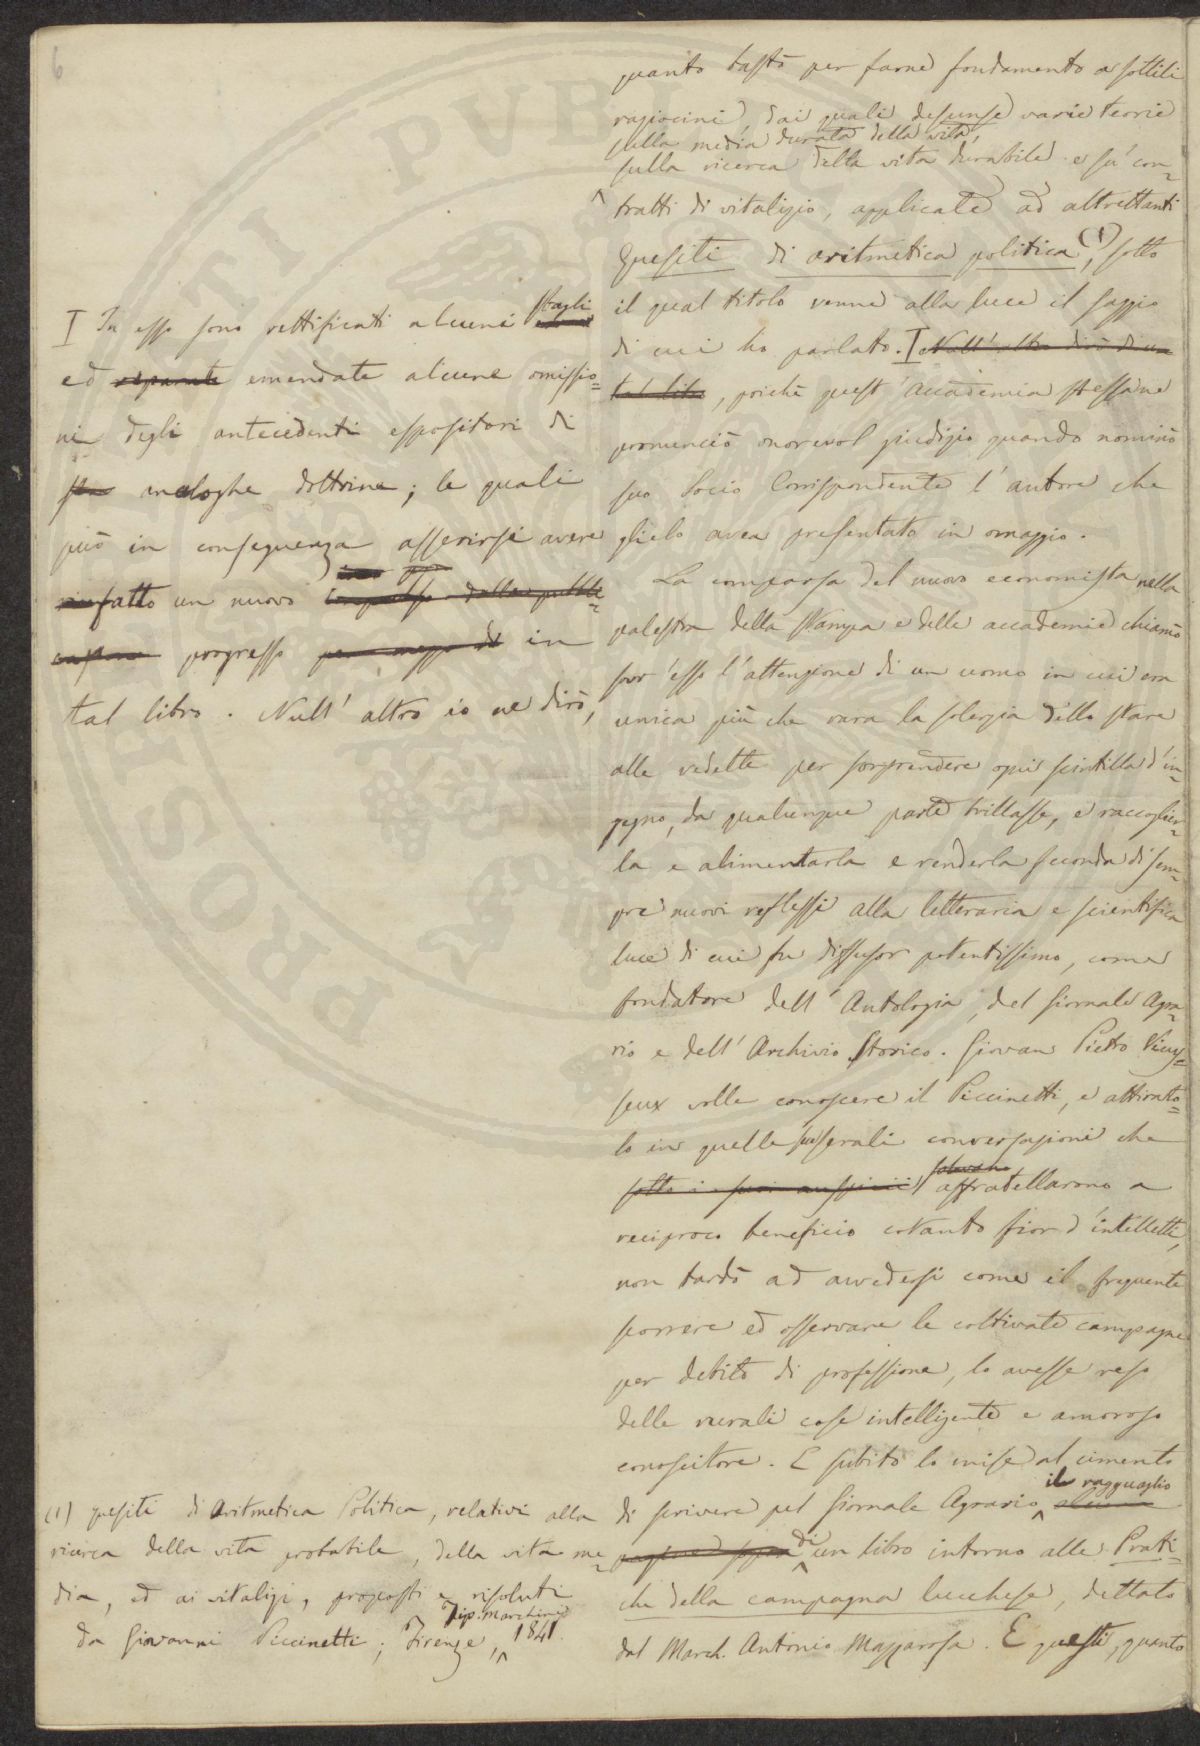 6
quanto bastò per farne fondamento a sottili
raziocini, dai quali desunse varie teorie
sulla media durata della vita,
sulla ricerca della vita durabile e su' con-
tratti di vitalizio, applicate ad altrettanti
Quesiti di aritmetica politica, (1) sotto
il qual titolo venne alla luce il saggio
di cui ho parlato. I Null'altro dirò di un
tal libro, poichè quest'Accademia stessa ne
pronunciò onorevol giudizio quando nominò
suo Socio Corrispondente l'autore che
glielo avea presentato in omaggio.
La comparsa del nuovo economista nella
palestra della stampa e delle accademie chiamò
sovr'esso l'attenzione di un uomo in cui era
unica più che rara la solerzia dello stare
alle vedette per sorprendere ogni scintilla d'in-
gegno, da qualunque parte brillasse, e raccoglier-
la e alimentarla e renderla feconda di sem-
pre nuovi reflessi alla letteraria e scientifica
luce di cui fu diffusor potentissimo, come
fondatore dell'Antologia, del Giornale Agra-
rio e dell'Archivio Storico. Giovan Pietro Vieus-
seux volle conoscere il Piccinetti, e attirato-
lo in quelle sue serali conversazioni che
sotto i suoi auspicii solevano affratellarono a
reciproco beneficio cotanto fior d'intelletti,
non tardò ad avvedersi come il frequente
scorrere ed osservare le coltivate campagne
per debito di professione, lo avesse reso
delle rurali cose intelligente e amoroso
conoscitore. E subito lo mise al cimento
di scrivere pel Giornale Agrario il ragguaglio
di un libro intorno alle Prati-
che della campagna lucchese, dettato
dal March. Antonio Mazzarosa. E questi, quanto
I In esso sono rettificati alcuni sbagli
ed separate emendate alcune omissio-
ni degli antecedenti espositori di
analoghe dottrine; le quali
può in conseguenza asserirsi avere
fatto un nuovo
progresso per mezzo di in
tal libro. Null'altro io ne dirò,
(1) Quesiti di Aritmetica Politica, relativi alla
ricerca della vita probabile, della vita me-
dia, ed ai vitalizi, proposti e risoluti
da Giovanni Piccinetti; Firenze, Tip. Marchini 1841.
PROSPERITATI PUBL